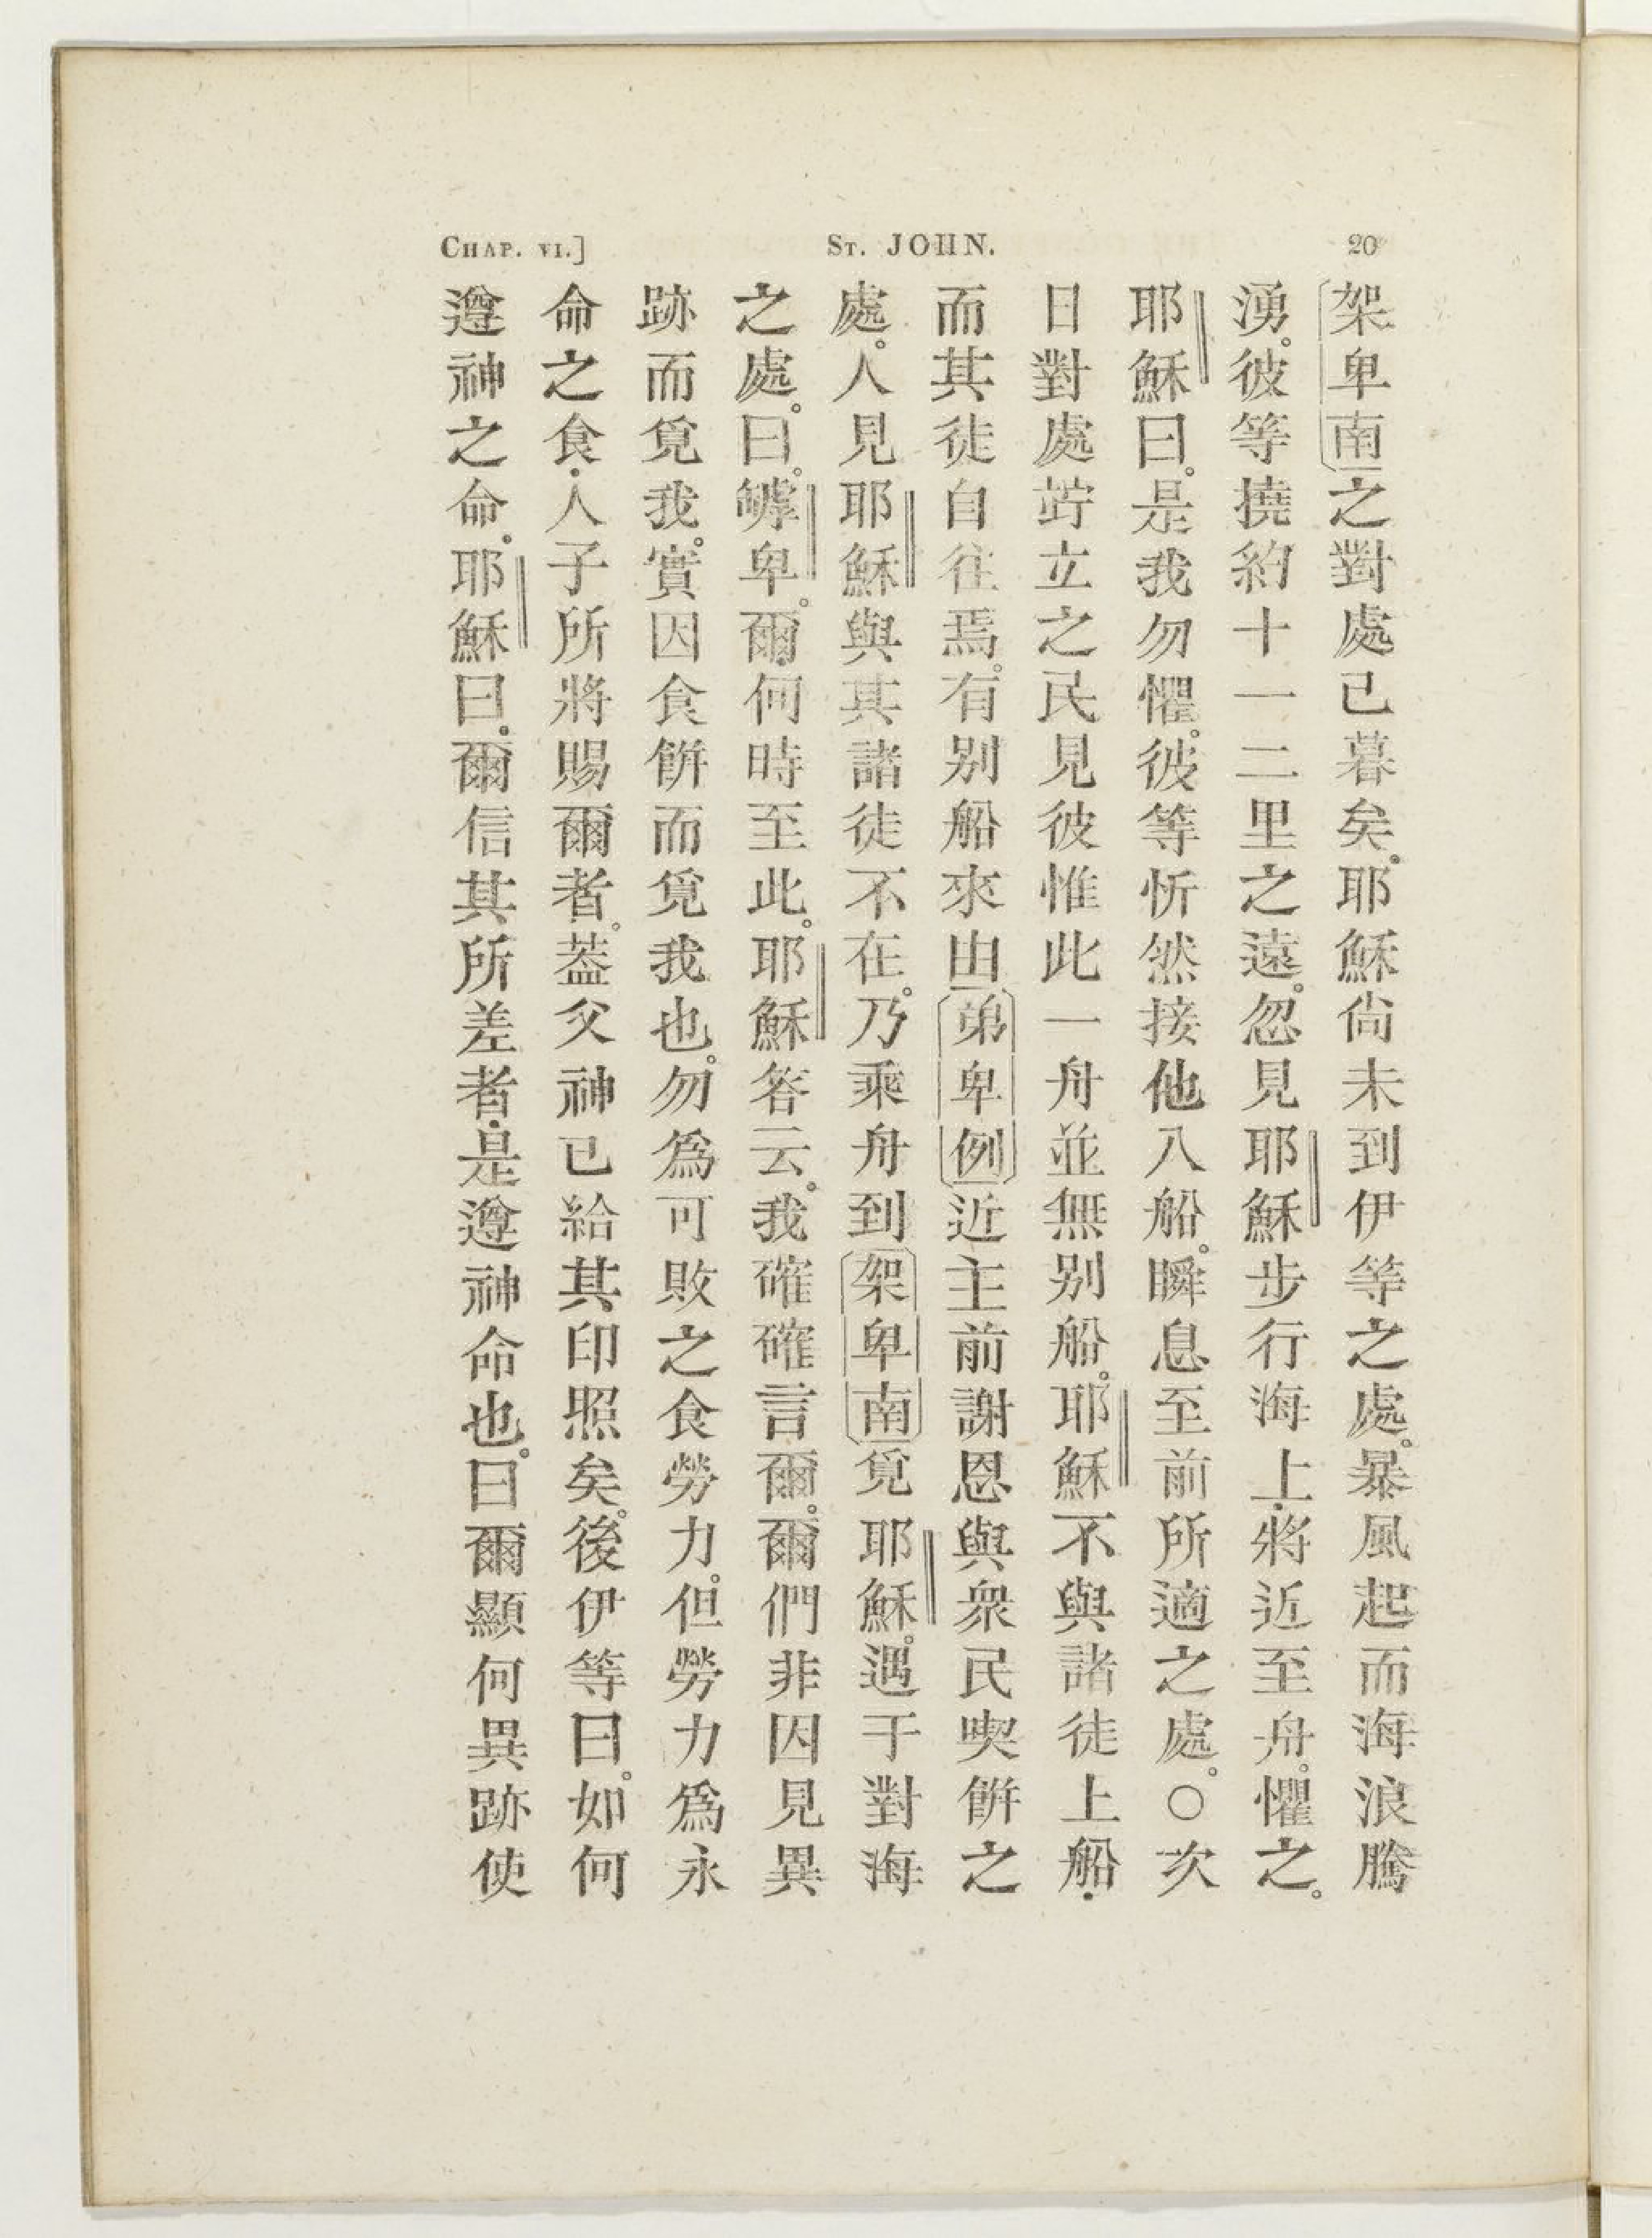 CHAP. VI.] ST. JOHN. 20
架卑南之對處已暮矣。耶穌尙未到伊等之處。暴風起而海浪騰
湧。彼等撓約十一二里之遠。忽見耶穌步行海上．將近至舟。懼之。
耶穌曰。是我勿懼。彼等忻然接他入船。瞬息至前所適之處。〇次
日對處竚立之民見彼惟此一舟並無別船。耶穌不與諸徒上船．
而其徒自往焉。有別船來由弟卑例近主前謝恩與衆民喫餅之
處。人見耶穌與其諸徒不在。乃乘舟到架卑南覓耶穌。遇于對海
之處。曰。嘑卑。爾何時至此。耶穌答云。我確確言爾。爾們非因見異
跡而覓我。實因食餅而覓我也。勿爲可敗之食勞力。但勞力爲永
命之食．人子所將賜爾者。葢父神已給其印照矣。後伊等曰。如何
遵神之命。耶穌曰。爾信其所差者．是遵神命也。曰爾顯何異跡使